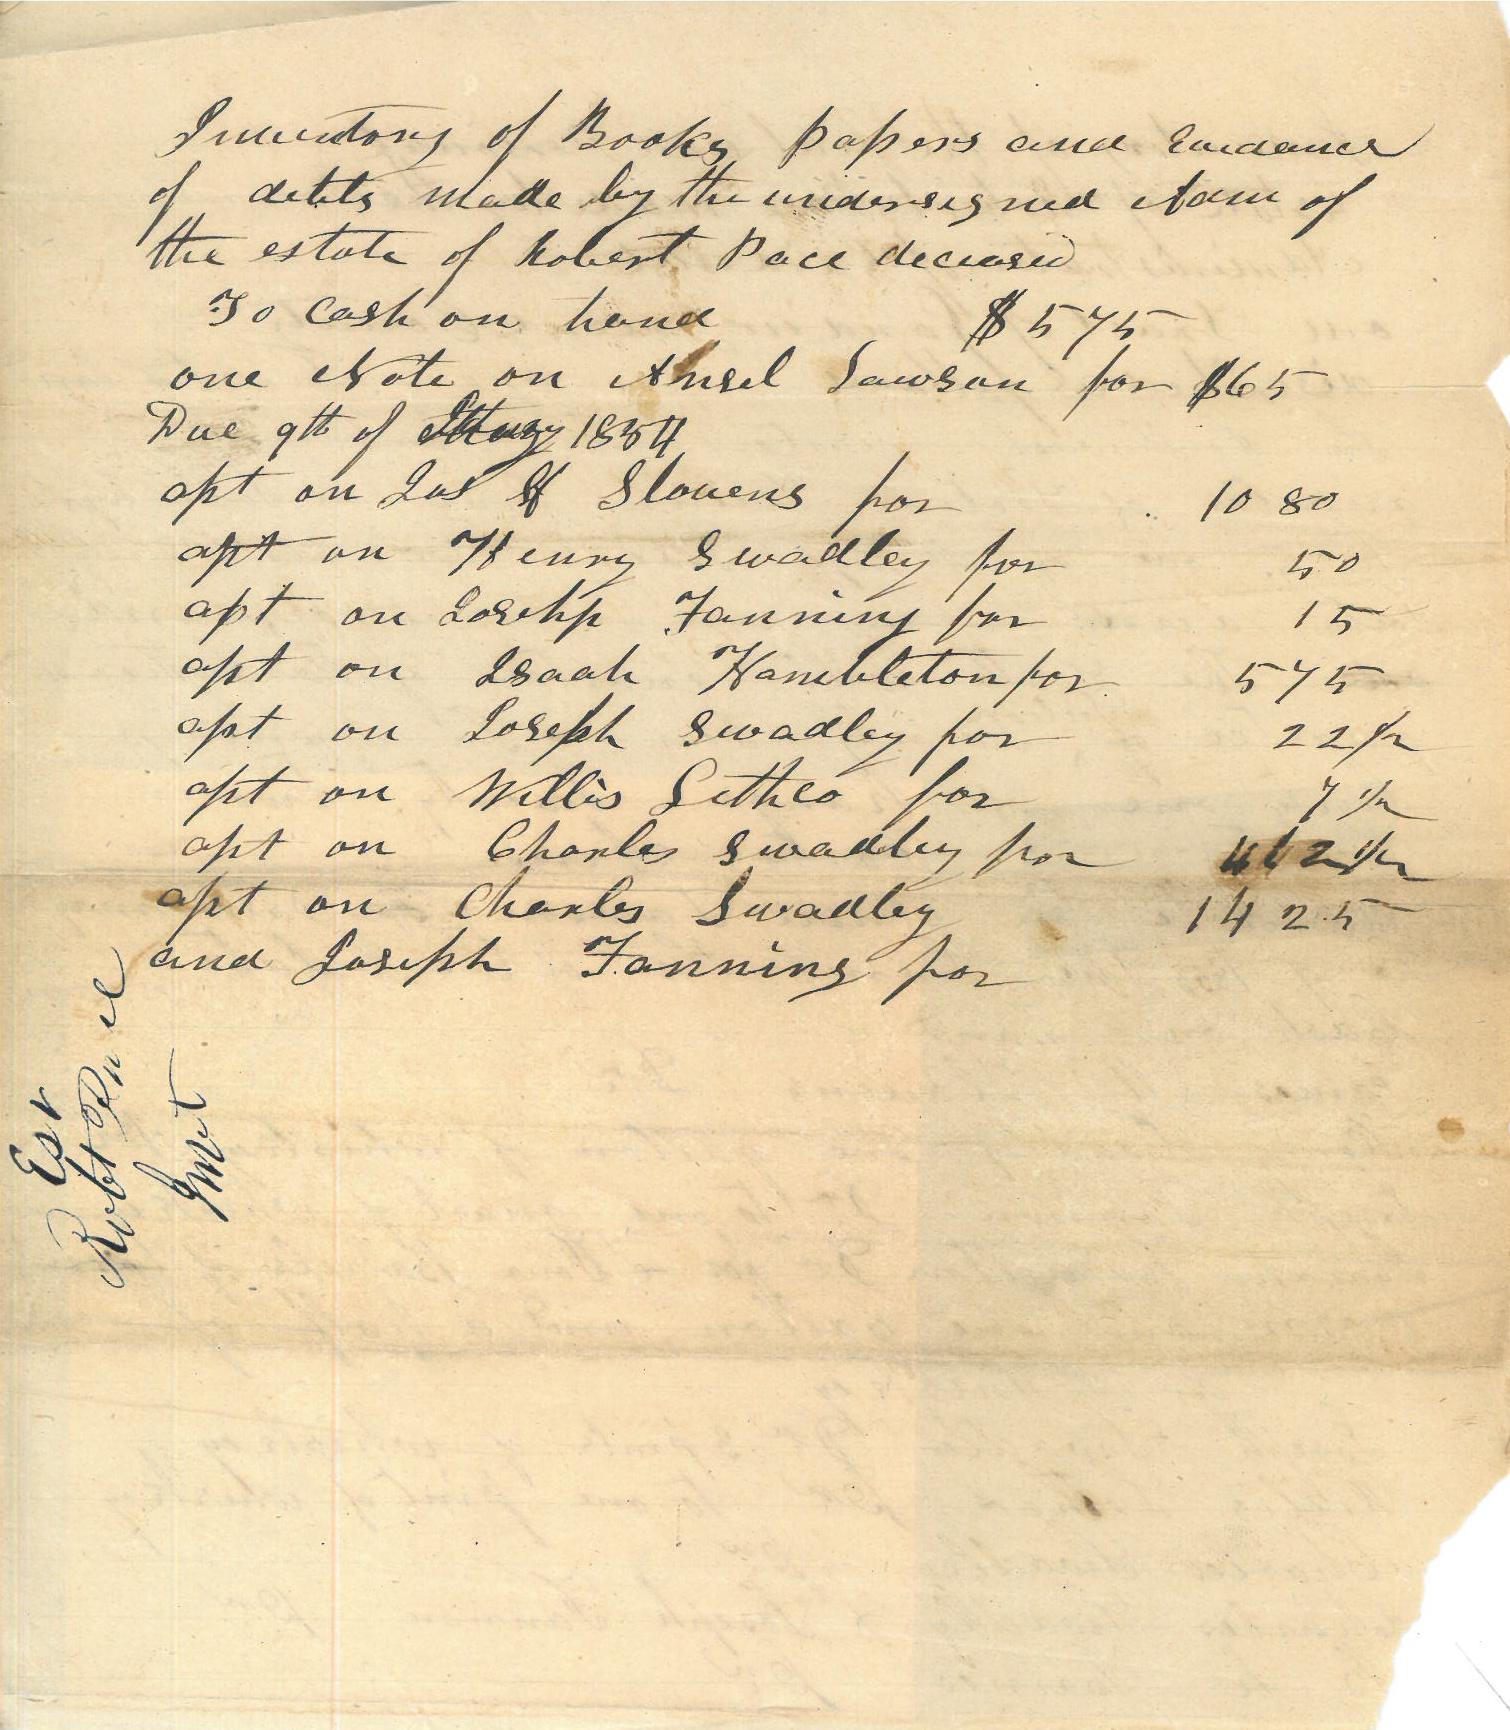 Inventory of Books papers and Evidance
of debts made by the undersigned Adm of
the estate of Robert Pace deceased
To Cash on hand $ 5 75
one Note on Ansel Lawson for $65
Due 9th of May 1854
apt on Jas H Slovens for 10 80
apt on Henry Swadley for 50
apt on Josehp Fanning for 15
apt on Isaah Hambleton for 5 75
apt on Joseph Swadley for 22 1/2
apt on Willis Lethco for 7 1/2
apt on Charles Swadley for 4 62 1/2
apt on Charles Swadley 14 25
and Joseph Fanning for
Est
Robt Pace
Invt